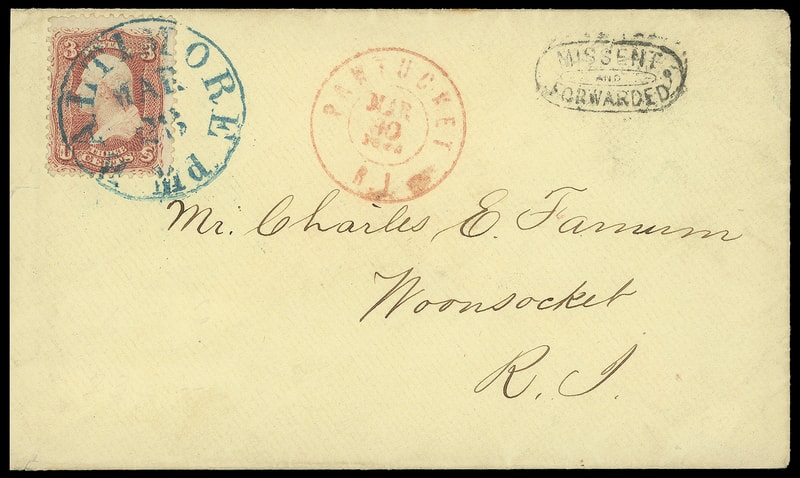 3 3
U THREE S
CENTS
BALTIMORE Md
MAR
PAWTUCKET
MAR
10
R.I.
MISSENT
AND
FORWARDED
Mr. Charles E. Farnum
Woonsocket
R. I.